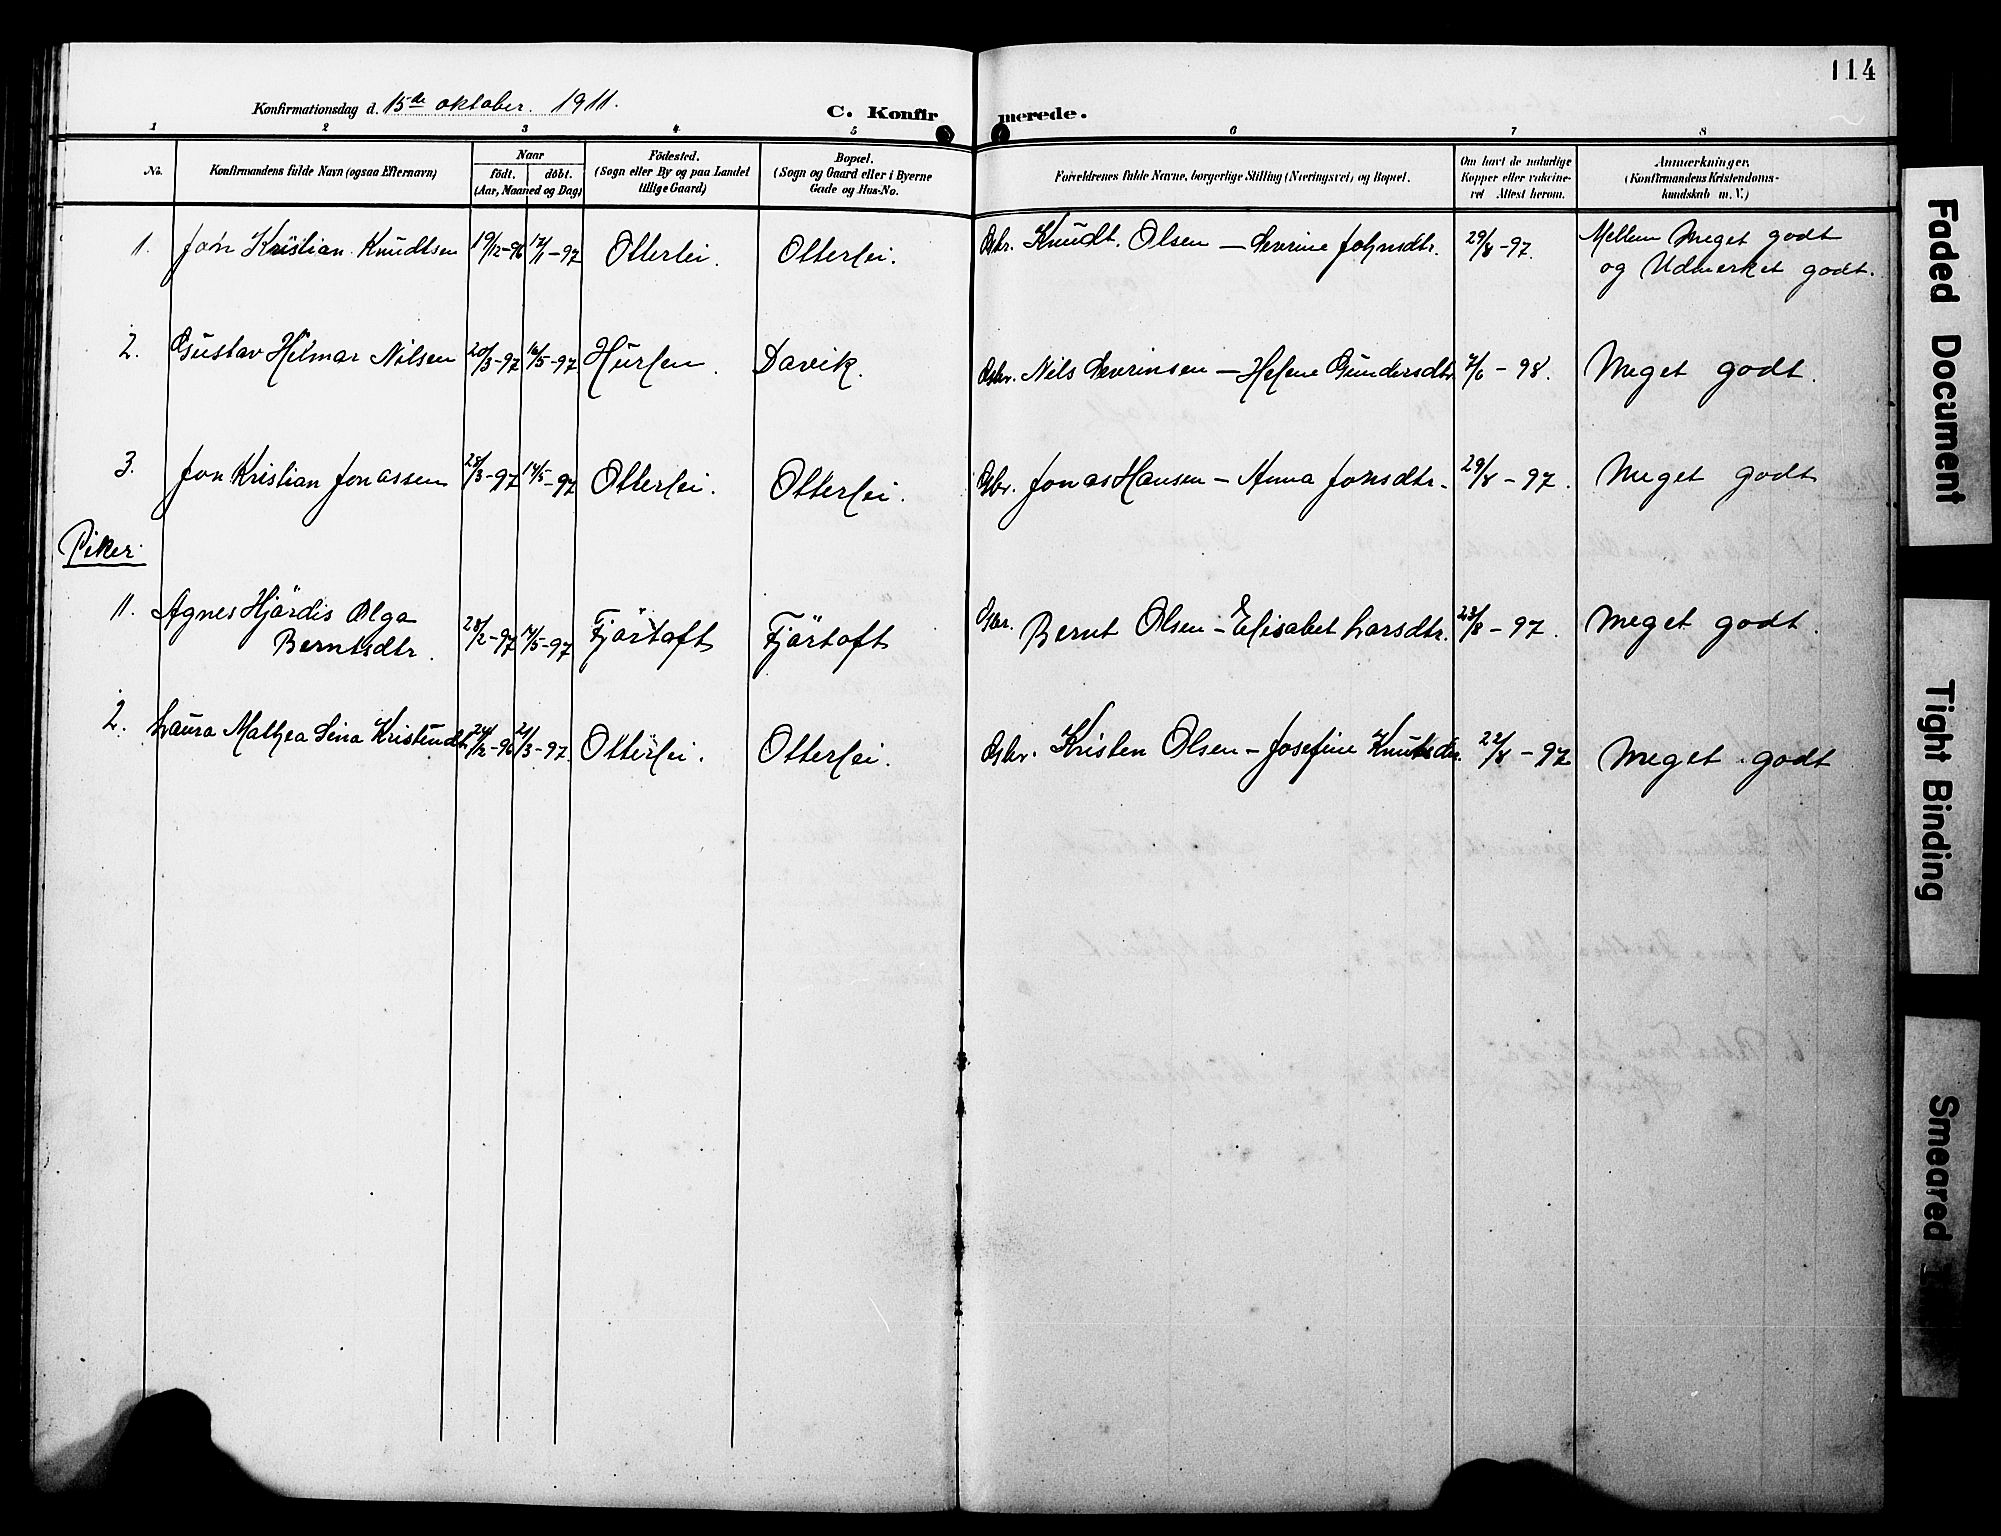 114
Konfirmationsdag d. 15de oktober. 1911.
C. Konfirmerede.
1 2 3 4 5 6 7 8
No.
Konfirmandens fulde Navn (ogsaa Efternavn)
Naar
födt. döbt.
(Aar, Maaned og Dag)
Födested.
(Sogn eller By og paa Landet
tillige Gaard)
Bopæl.
(Sogn og Gaard eller i Byerne
Gade og Hus-No.
Forældrenes fulde Navne, borgerlige Stilling (Næringsvei) og Bopæl.
Om havt de naturlige
Kopper eller vakcine-
ret Attest herom.
Anmærkninger.
(Konfirmandens Kristendoms-
kundskab m. V.)
1. Jon Kristian Knudtsen 19/12-96 17/1-97 Otterlei. Otterlei. Gbr. Knudt Olsen - Severine Johnsdtr. 29/8-97. Mellem Meget godt
og Udmerket godt.
2. Gustav Hilmar Nilsen 20/3-97 16/5-97 Hurlen. Davik. Gbr. Nils Severinsen - Helene Gundersdtr 7/6-98. Meget godt.
3. Jon Kristian Jonassen 28/3-97 14/5-97 Otterlei. Otterlei. Gbr. Jonas Hansen - Anna Jonsdtr. 29/8-97. Meget godt
Piker.
11. Agnes Hjördis Olga
Berntsdtr. 28/2-97 14/5-97 Fjörtoft Fjörtoft Gbr. Bernt Olsen - Elisabet Larsdtr. 23/8-97. Meget godt.
2. Laura Mathea Sina Kristendtr. 24/12-96 21/3-97. Otterlei. Otterlei. Gbr. Kristen Olsen - Josefine Knutsdtr. 22/8-97 Meget godt
Faded Document
Tight Binding
Smeared